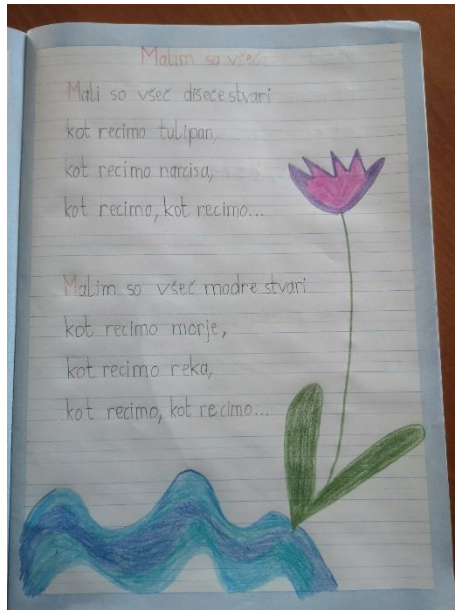 Malim so všeč
Mali so všeč dišeče stvari
kot recimo tulipan,
kot recimo narcisa,
kot recimo, kot recimo...
Malim so všeč modre stvari
kot recimo morje,
kot recimo reka,
kot recimo, kot recimo...